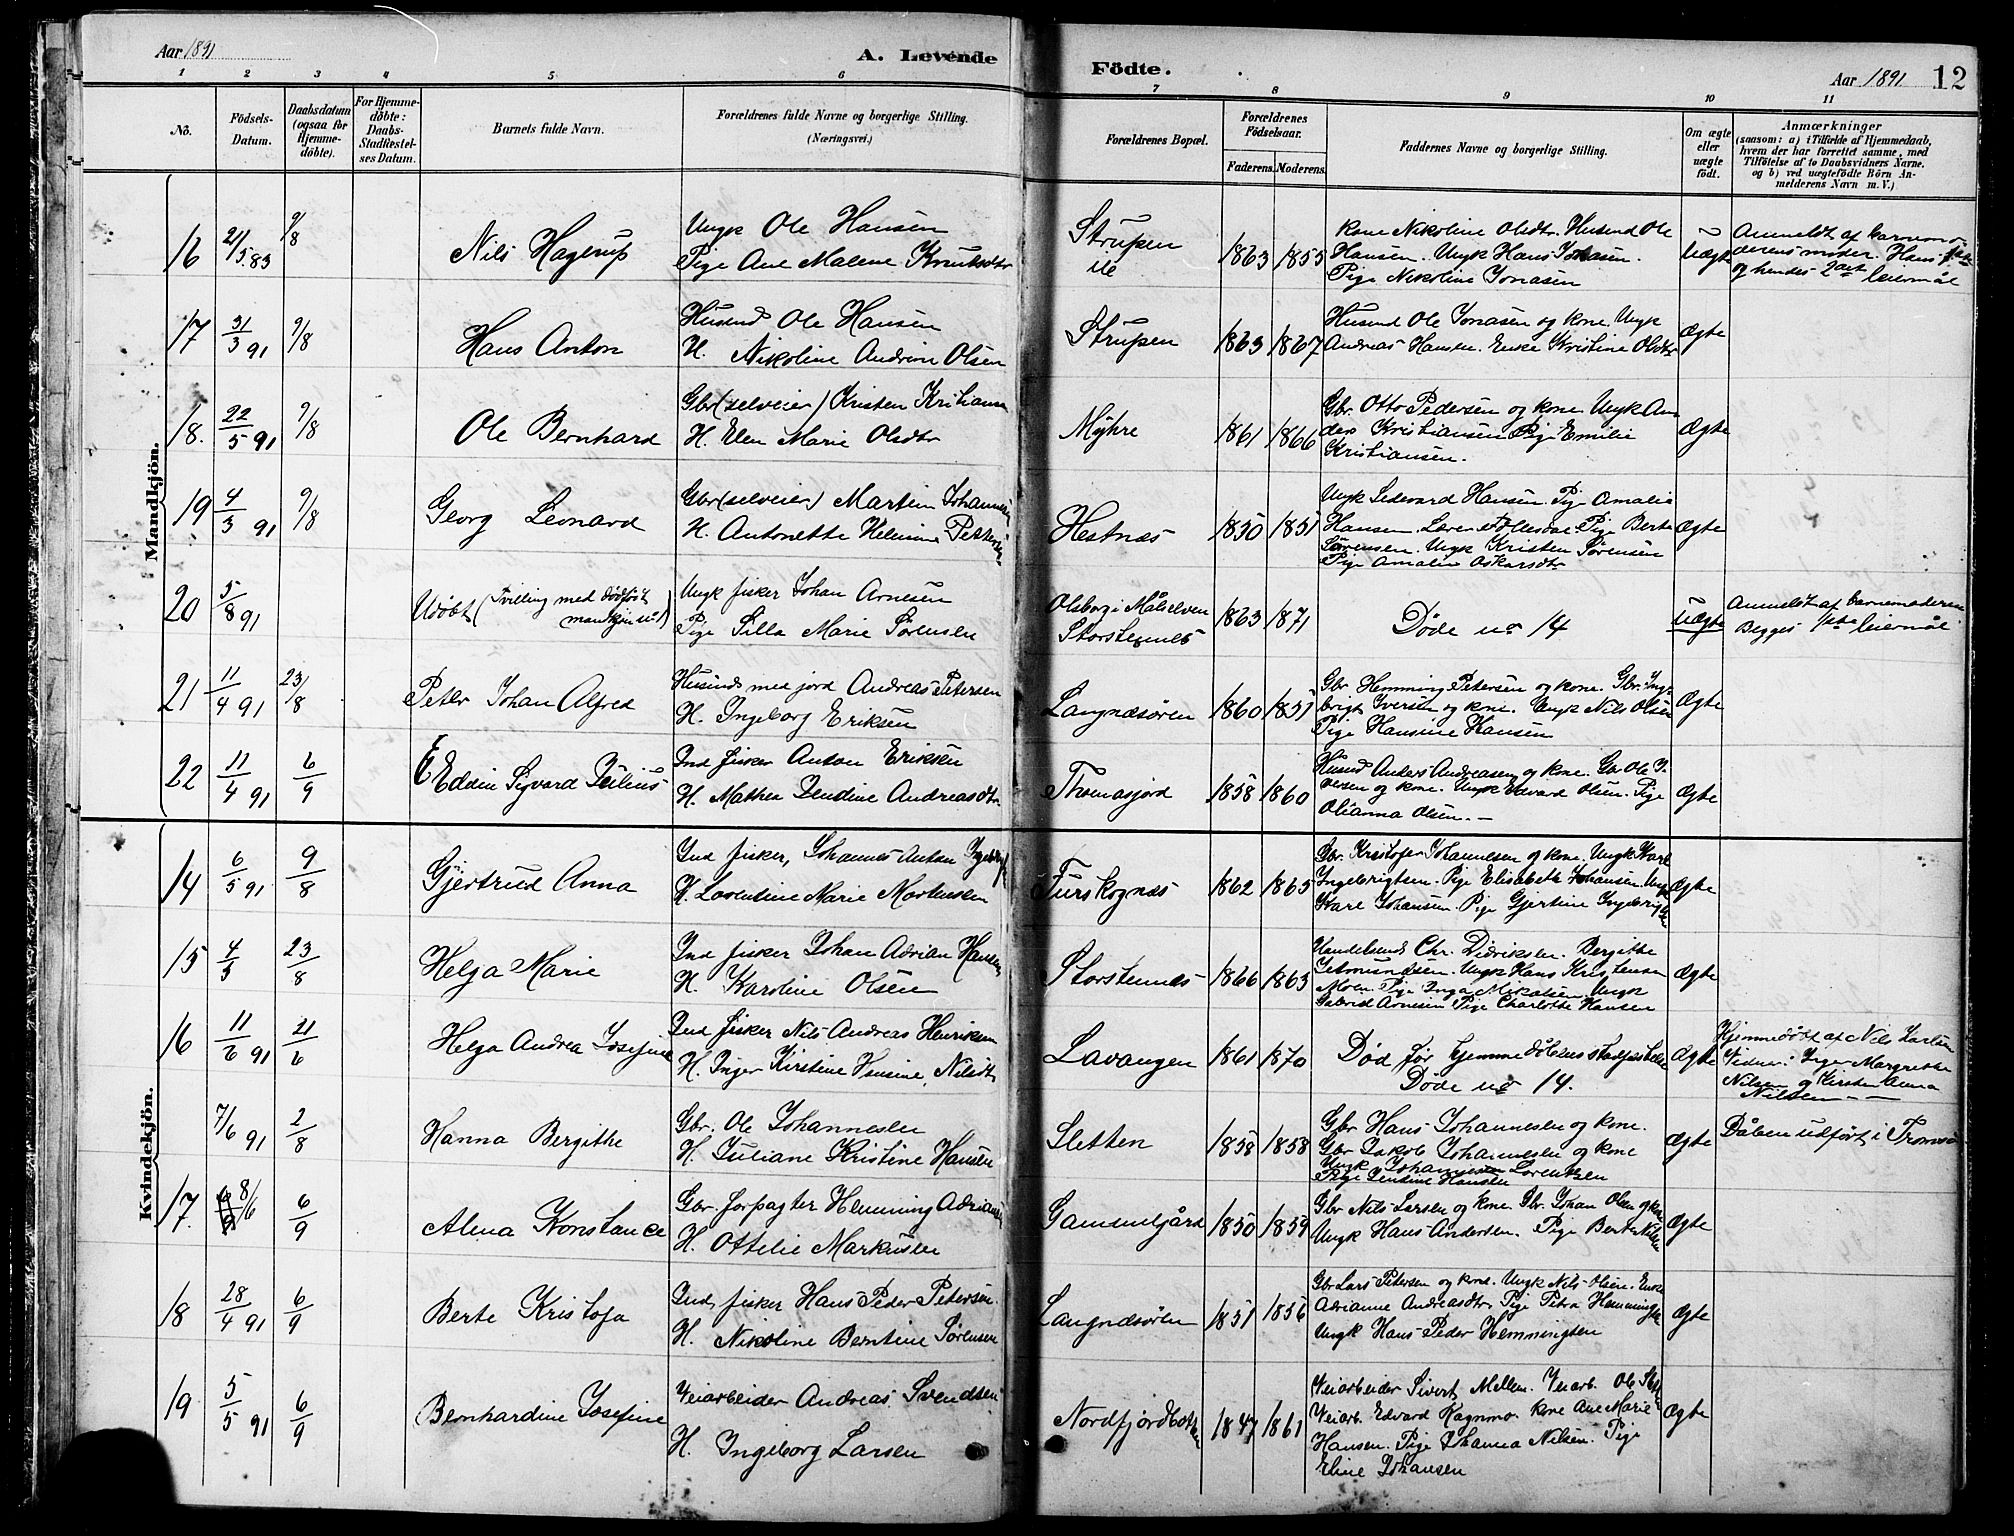 Aar 1891
A. Levende
Födte.
Aar 1891
12
1 2 3 4 5 6 7 8 9 10 11
No.
Födsels-
Datum.
Daabsdatum
(ogsaa for
Hjemme-
döbte).
For Hjemme-
döbte:
Daabs-
Stadfæstel-
ses Datum.
Barnets fulde Navn.
Forældrenes fulde Navne og borgerlige Stilling.
(Næringsvei.)
Forældrenes Bopæl.
Forældrenes
Födselsaar.
Faderens. Moderens.
Faddernes Navne og borgerlige Stilling.
Om ægte
eller
uægte
födt.
Anmærkninger
(saasom: a) i Tilfælde af Hjemmedaab,
hvem der har forrettet samme, med
Tilföielse af to Daabsvidners Navne.
og b) ved uægtefödte Börn An-
melderens Navn m. V.)
Mandkjön.
16 21/5.83 9/8
Nils Hagerup
Ungk Ole Hansen
Pige Ane Malene Knutsdtr
Strupen
1863 1855
Kone Nikoline Olsdtr. Husmd Ole
Hansen. Ungk Hans Johasen.
Pige Nikoline Jonasen
Uægte
Anmeldt af barnemo-
derens moder. Hans 1ste
og hendes 2det leiermål
17 31/3 91 9/8
Hans Anton
Husmd Ole Hansen
H. Nikoline Andrine Olsen
Strupen
1863 1867
Husmd Ole Jonasen og kone. Ungk
Andreas Hansen. Enke Kristine Olsdtr
Ægte
18. 22/5 91 9/8
Ole Bernhard
Gbr (selveier) Kristen Kristiansen
H. Elen Marie Olsdtr
Myhre
1861 1866
Gbr. Otto Pedersen og kone. Ungk An-
ders Kristiansen Pige Emilie
Kristiansen.
Ægte
19 4/3 91 9/8
Georg Leonard
Gbr (selveier) Martin Johannesen
H. Antonette Helmine Pettersen
Hestnæs
1850 1851
Ungk Ledevard Hansen. Pige Amalia
Hansen. Pige Berte
Sørensen. Ungk Kristen Sørensen
Pige Amalie Oskarsdtr
Ægte
20 5/8 91
Udøbt (Tvilling med dødfødt
mandkjøn no 1)
Ungk fisker Johan Arnesen
Pige Silla Marie Sørensen
Olsborg i Målselven
Storstennes
1863 1871
Døde no 14
Uægte
Anmeldt af barnemoderen
Begges 1ste leiermål
21 11/4 91 23/8
Peter Johan Alfred
Husmd med jord Andreas Petersen
H. Ingeborg Eriksen
Langnæsøren
1860 1851
Gbr Hemming Petersen og kone. Gbr. Ing-
brigt Iversen og kone. Ungk Nils Olsen
Pige Hansine Hansen
Ægte
22 11/4 91 6/9
Eddin Sigvard Julius
Ind fisker Anton Eriksen
H. Mathea Jendine Andreasdtr
Thomasjord
1858 1860
Husmd Anders Andreasen og kone. Gbr Ole I-
versen og kone. Ungk Edvard Olsen. Pige
Olianna Olsen. –
Ægte
Kvindekjön.
14 6/5 91 9/8
Gjertrud Anna
Ind fisker, Johannes Anton Ingebrigt
H. Lorentine Marie Mortensen
Furskognæs
1862 1865
Gbr. Kristofer Johannesen og kone. Ungk Karl
Ingebrigtsen. Pige Elisabeth Johansen. Ungk
Karl Johansen. Pige Gjertine Ingebrigts
Ægte
15 4/5 23/8
Helga Marie
Ind fisker Johan Adrian Hansen
H. Karoline Olsen
Storstennæs
1866 1863
Handelsmd Chr. Didriksen. Bergitte
Ungk Hans Kristensen
Moen. Pige Inga Mikalsen. Ungk
Gabriel Arnesen Pige Charlotte Hansen
Ægte
16 11/6 91 21/6
Helga Andrea Josefine
Ind fisker Nils Andreas Henriksen
H. Inger Kirstine Hansine, Nilsdtr
Lavangen
1861 1870
Død før hjemmedåbens stadfæstelse
Døde no 14.
Ægte
Hjemmedøbt af Nils Larsen
Vidner: Inger Margrethe
Nilsen og Kirsten Anna
Nilsen – –
7/6 91 2/8
Hanna Bergithe
Gbr. Ole Johannesen
H. Juliane Kristine Hansen
Sletten
1858 1858
Gbr Hans Johannesen og kone.
Gbr Jakob Johannesen og kone
Ungk Johannes Lorentsen
Pige Jendine Hansen
Ægte
Dåben udført i Tromsø
17. 8/6 6/9
Alma Konstance
Gbr. forpagter Hemming Adriansen
H. Ottelie Markusen
Gammelgård
1850 1859
Gbr Nils Larsen og kone Gbr. Johan Olsen og kone
Ungk Hans Andersen. Pige Berte Nilsen
Ægte
18 28/4 91 6/9
Berte Kristofa
Ind. fisker Hans Peder Petersen.
H. Nikoline Berntine Sørensen
Langnæsøren
1851 1856
Gbr Lars Petersen og kone. Ungk Nils Olsen. Enke
Adrianne Andreasdtr Pige Petra Hemmingsen
Ungk Hans Peder Hemmingsen
Ægte
19 5/5 91 6/9
Bernhardine Josefine
Veiarbeider Andreas Svendsen
H. Ingeborg Larsen
Nordfjordbotten
1847 1861
Veiarbeider Sivert Mellem. Veiarb. Ole
Veiarb. Edvard Ragnmo. Kone Ane Marie
Hansen. Pige Johanna Nilsen. Pige
Eline Johansen
Ægte